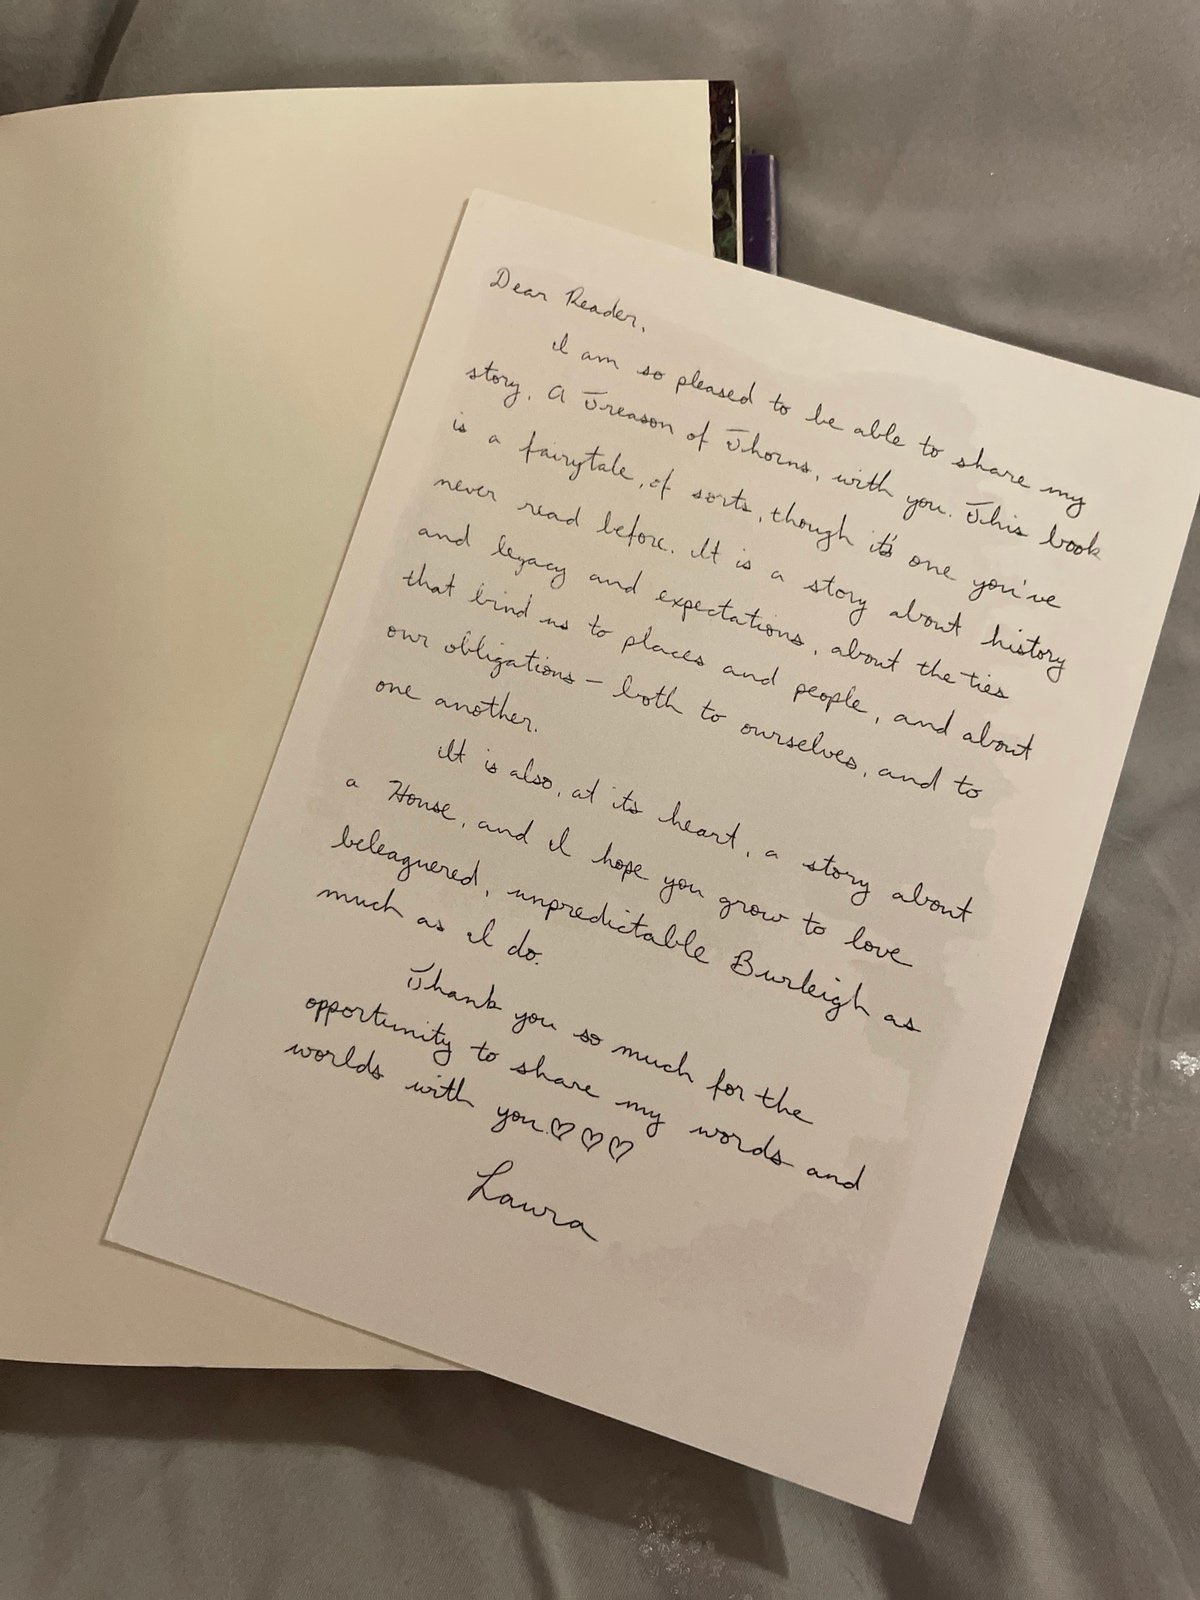 Dear Reader,
I am so pleased to be able to share my
story, A Treason of Thorns, with you. This book
is a fairytale, of sorts, though it's one you've
never read before. It is a story about history
and legacy and expectations, about the ties
that bind us to places and people, and about
our obligations – both to ourselves, and to
one another.
It is also, at its heart, a story about
a House, and I hope you grow to love
beleaguered, unpredictable Burleigh as
much as I do.
Thank you so much for the
opportunity to share my words and
worlds with you.♡♡♡
Laura